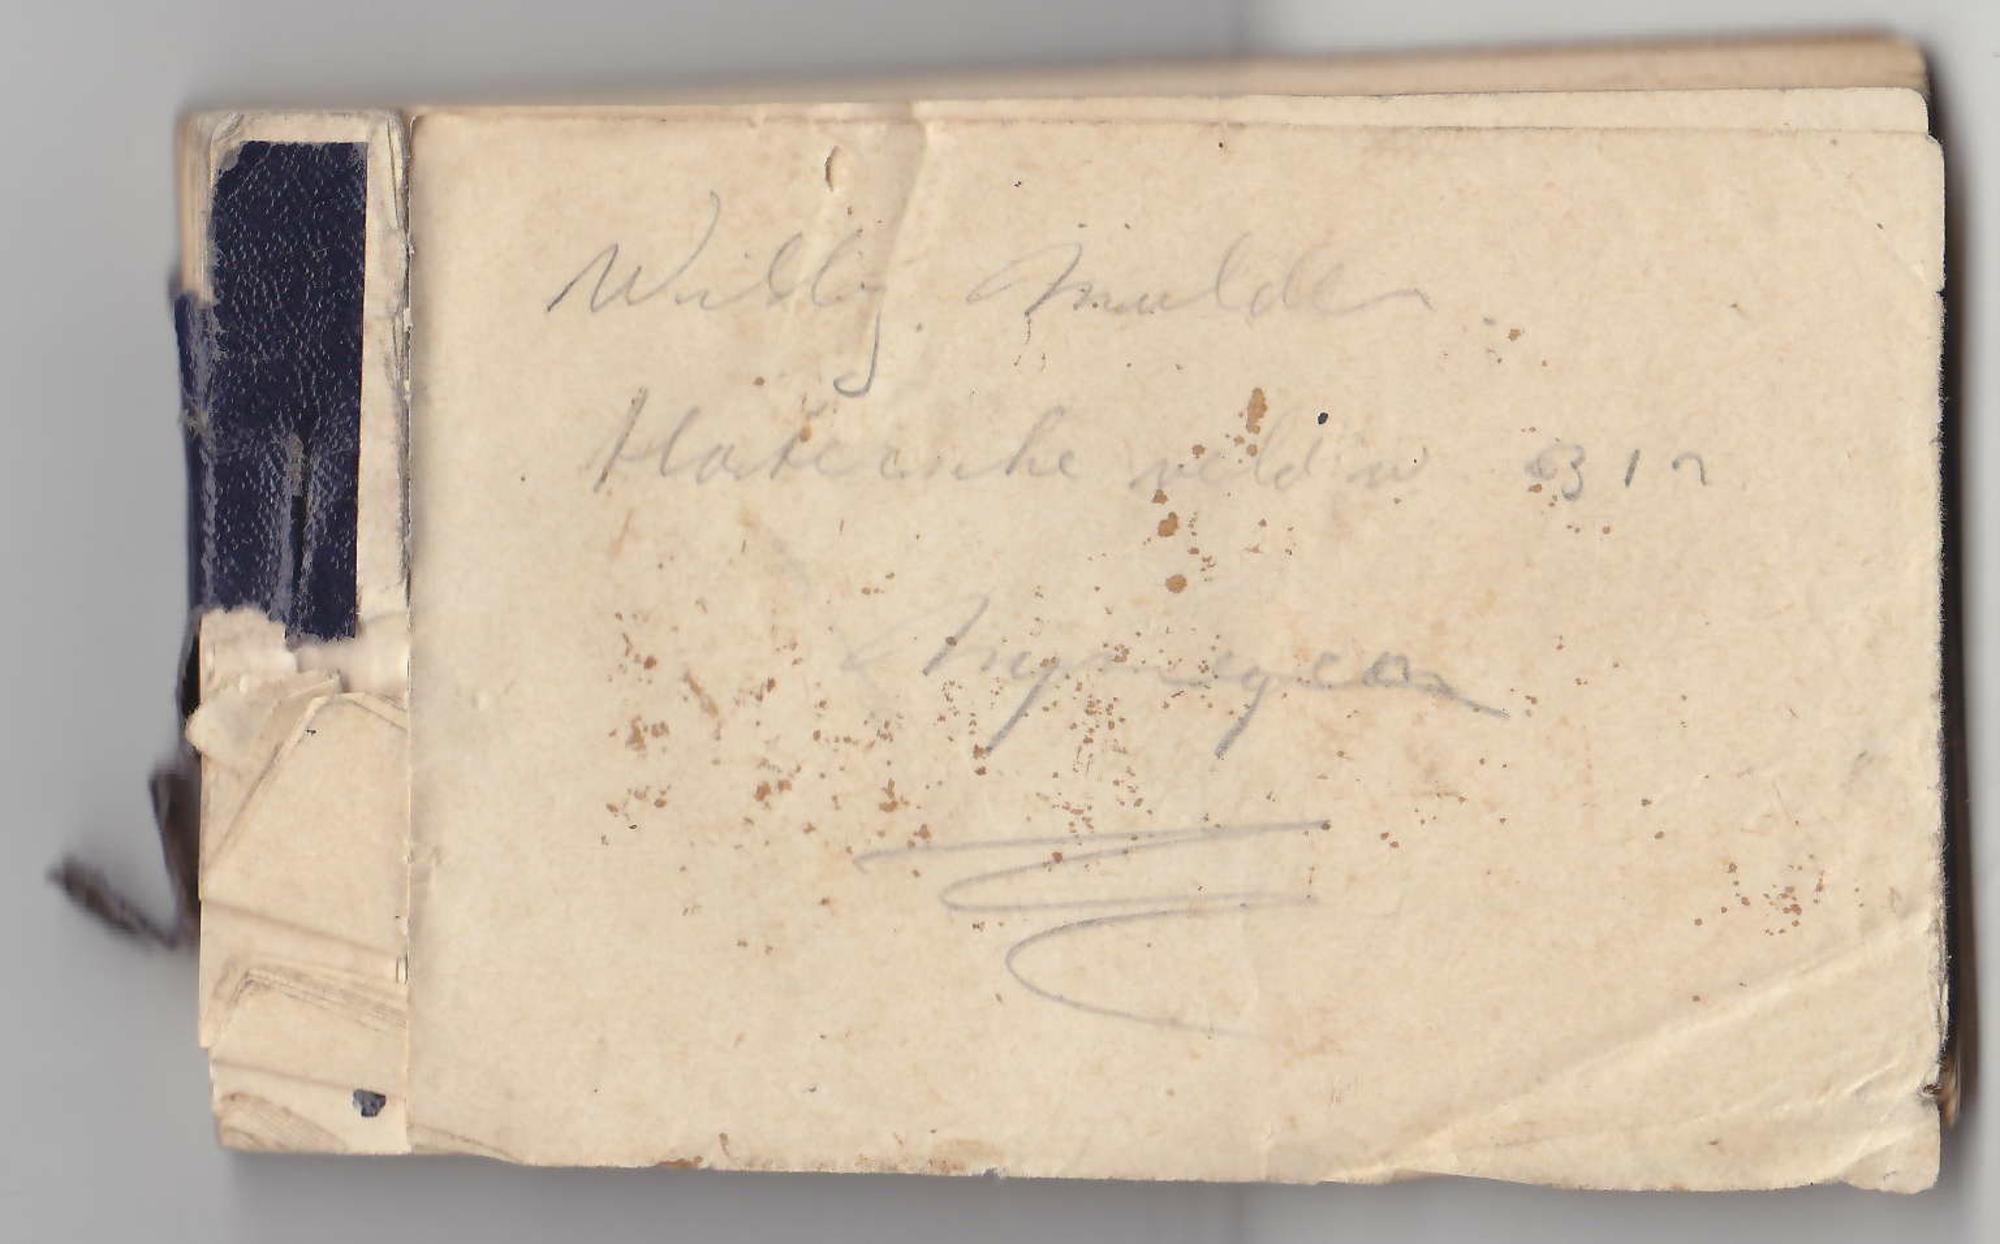 Willy Mulder.
Hatersche veld w 312
Nijmegen